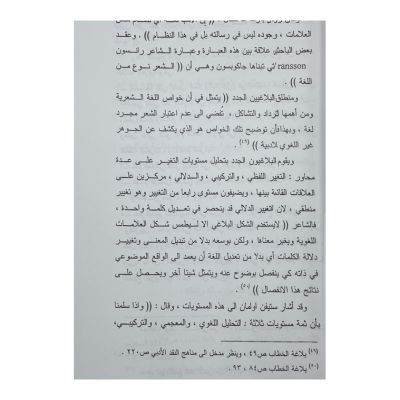 العلامات ، وجوده ليس في رسالته بل في هذا النظام )) . وعقد
بعض الباحثين علاقة بين هذه العبارة وعبارة الشاعر رانسون
ransson التي تبناها جاكوبسون وهي أن (( الشعر نوع من
اللغة )) .
ومنطلق البلاغيين الجدد يتمثل في أن خواص اللغة الشعرية
ومن أهمها التزداد والتشاكل ، تفضي الى عدم اعتبار الشعر مجرد
لغة ، وبهذا فأن توضيح تلك الخواص هو الذي يكشف عن الجوهر
غير اللغوي للادبية )) (٤٩) .
ويقوم البلاغيون الجدد بتحليل مستويات التغير على عدة
محاور : التغير اللفظي ، والتركيبي ، والدلالي ، مركزين على
العلاقات القائمة بينها ، ويضيفون مستوى رابعا من التغيير وهو تغيير
منطقي ، لان التغيير الدلالي قد ينحصر في تعديل كلمة واحدة ،
فالشاعر (( لايستخدم الشكل البلاغي الا ليطمس شكل العلامات
اللغوية ويغير معناها ، ولكن بوسعه بدلا من تبديل المعنى وتغيير
دلالة الكلمات أي بدلا من تعديل اللغة أن يعمد الى الواقع الموضوعي
في ذاته كي ينفصل بوضوح عنه ويتمثل شيئا آخر ويحصل على
نتائج هذا الانفصال )) (٥٠) .
وقد أشار ستيفن اولمان الى هذه المستويات ، وقال : (( واذا سلمنا
بأن ثمة مستويات ثلاثة : التحليل اللغوي ، والمعجمي ، والتركيبي،
(٤٩) بلاغة الخطاب ص٤٩ ، وينظر مدخل الى مناهج النقد الأدبي ص٢٢٠ .
(٥٠) بلاغة الخطاب ص٨٤ ، ٩٣ .